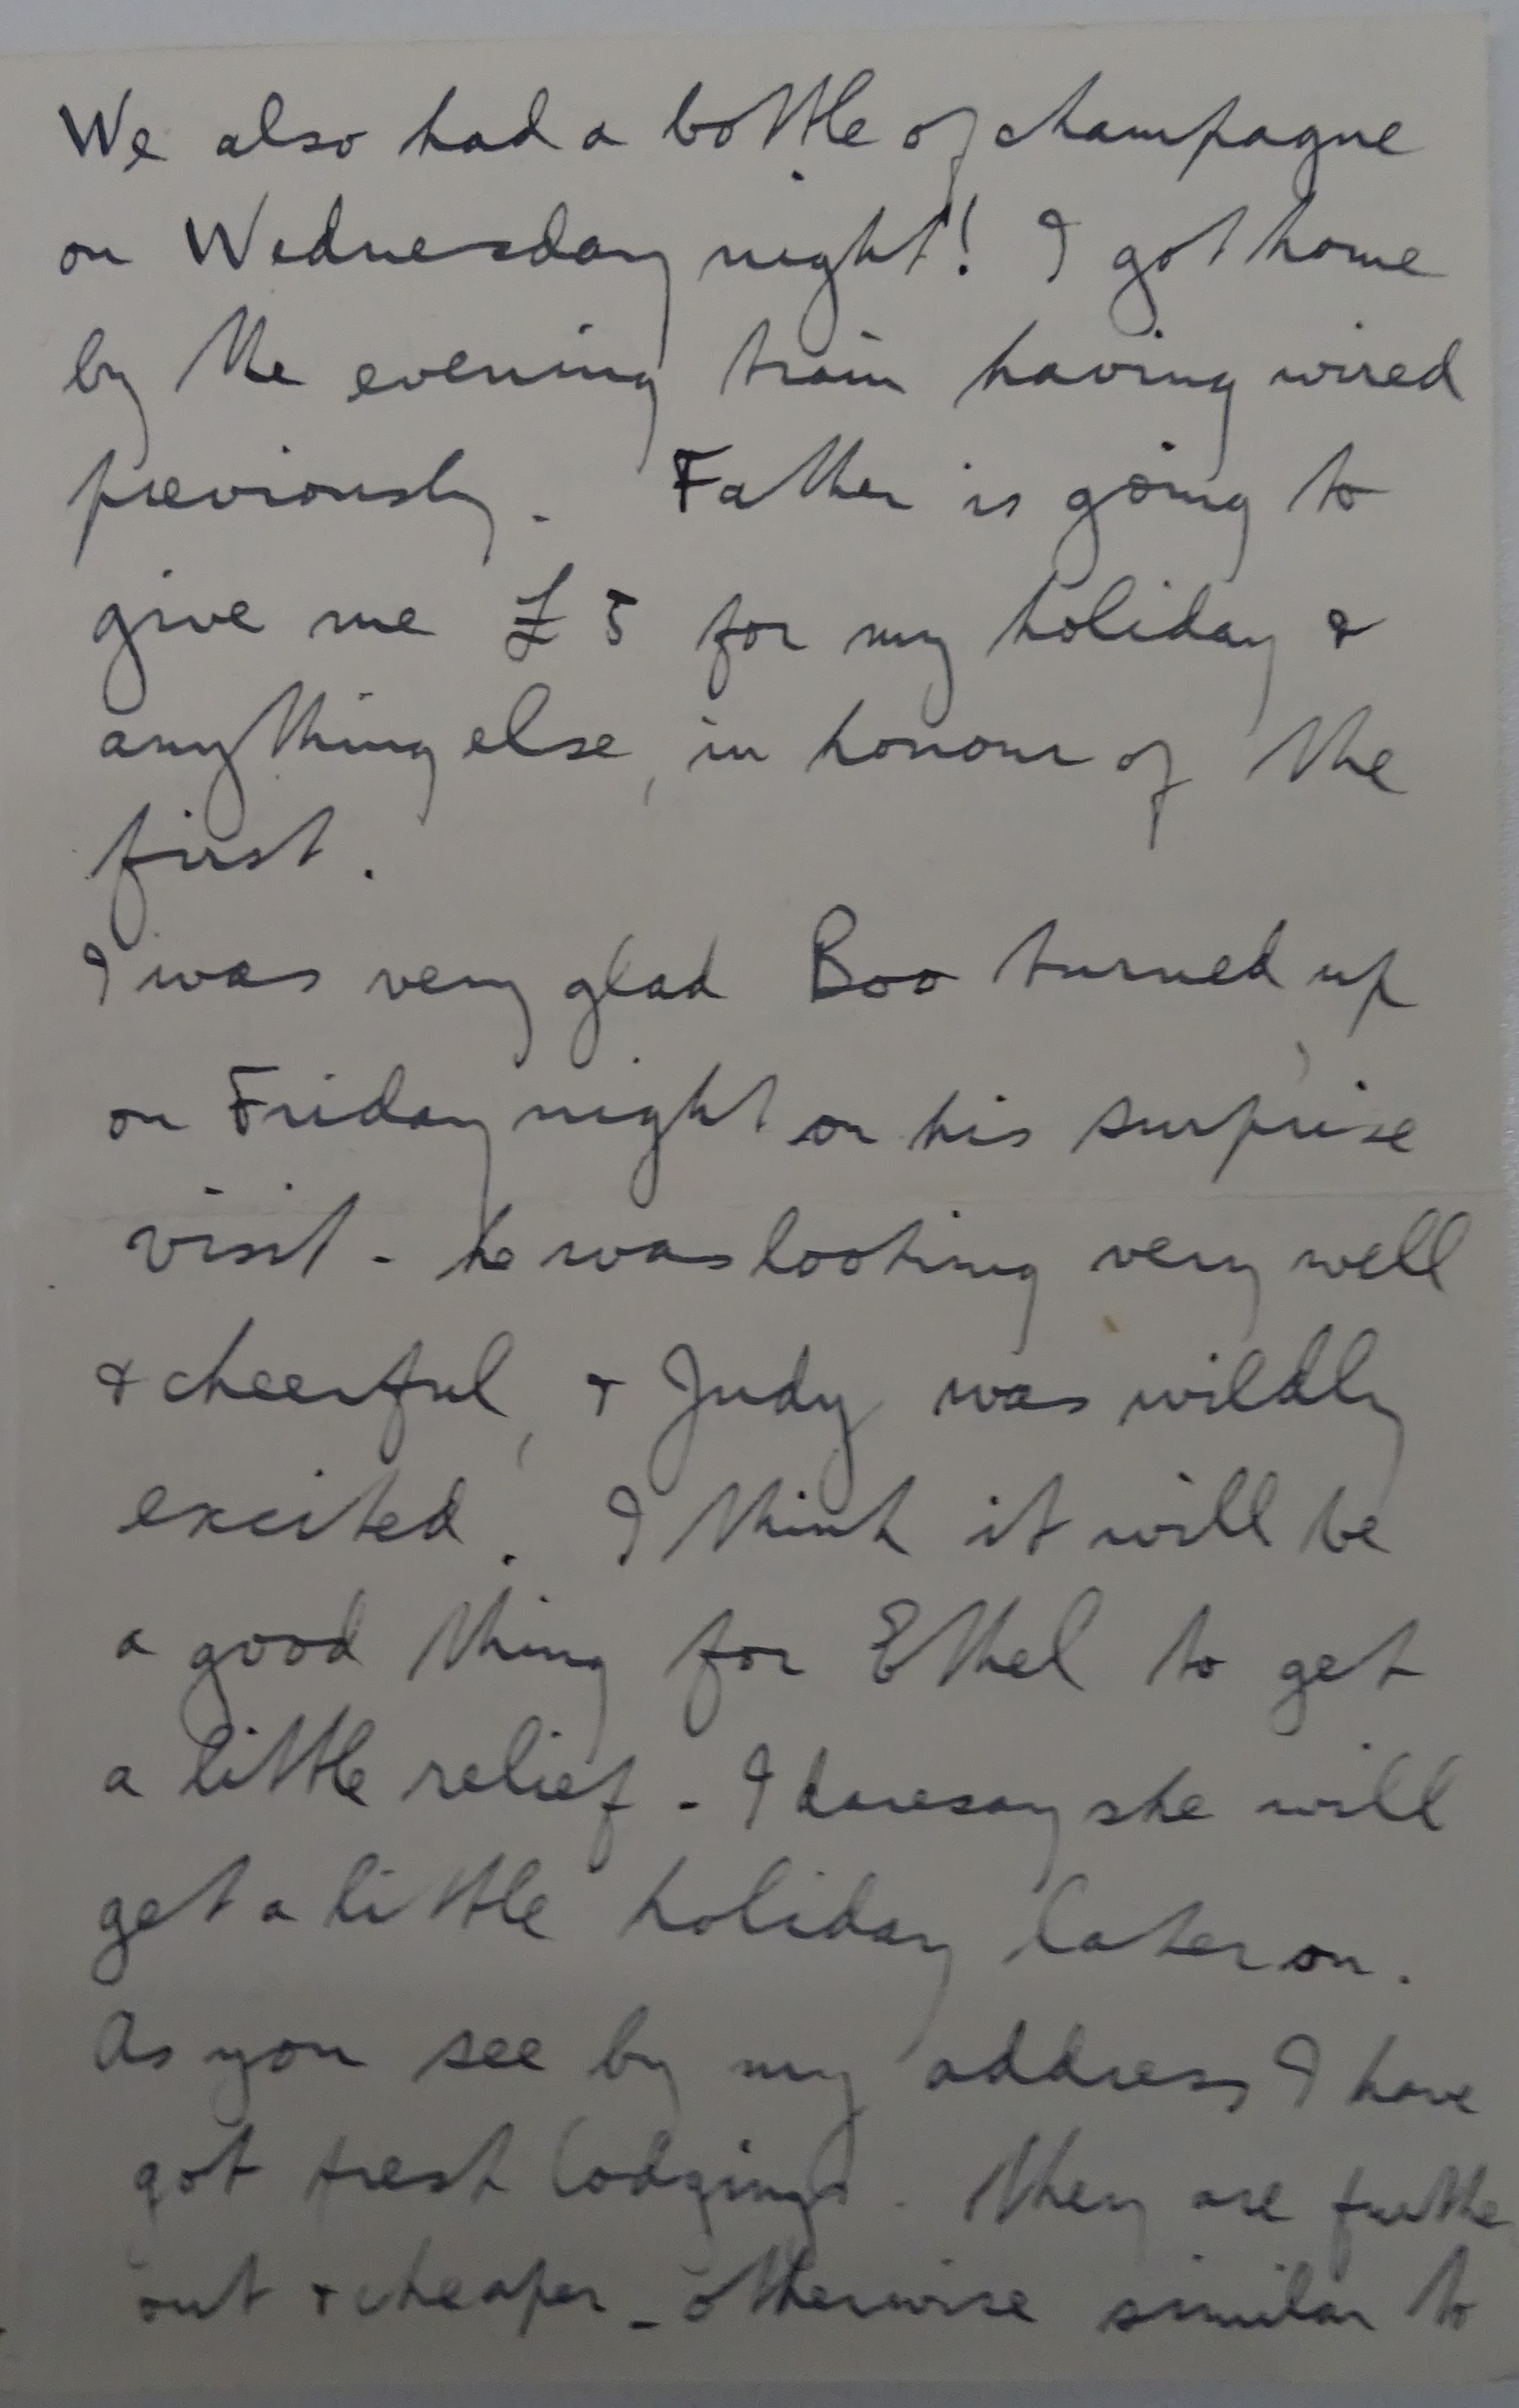 We also had a bottle of champagne
on Wednesday night! I got home
by the evening train having wired
previously. Father is going to
give me £5 for my holiday &
anything else, in honour of the
first.
I was very glad Boo turned up
on Friday night on his surprise
visit - he was looking very well
& cheerful, & Judy was wildly
excited. I think it will be
a good thing for Ethel to get
a little relief - I daresay she will
get a little holiday later on.
As you see by my address I have
got fresh lodgings. They are further
out & cheaper - otherwise similar to